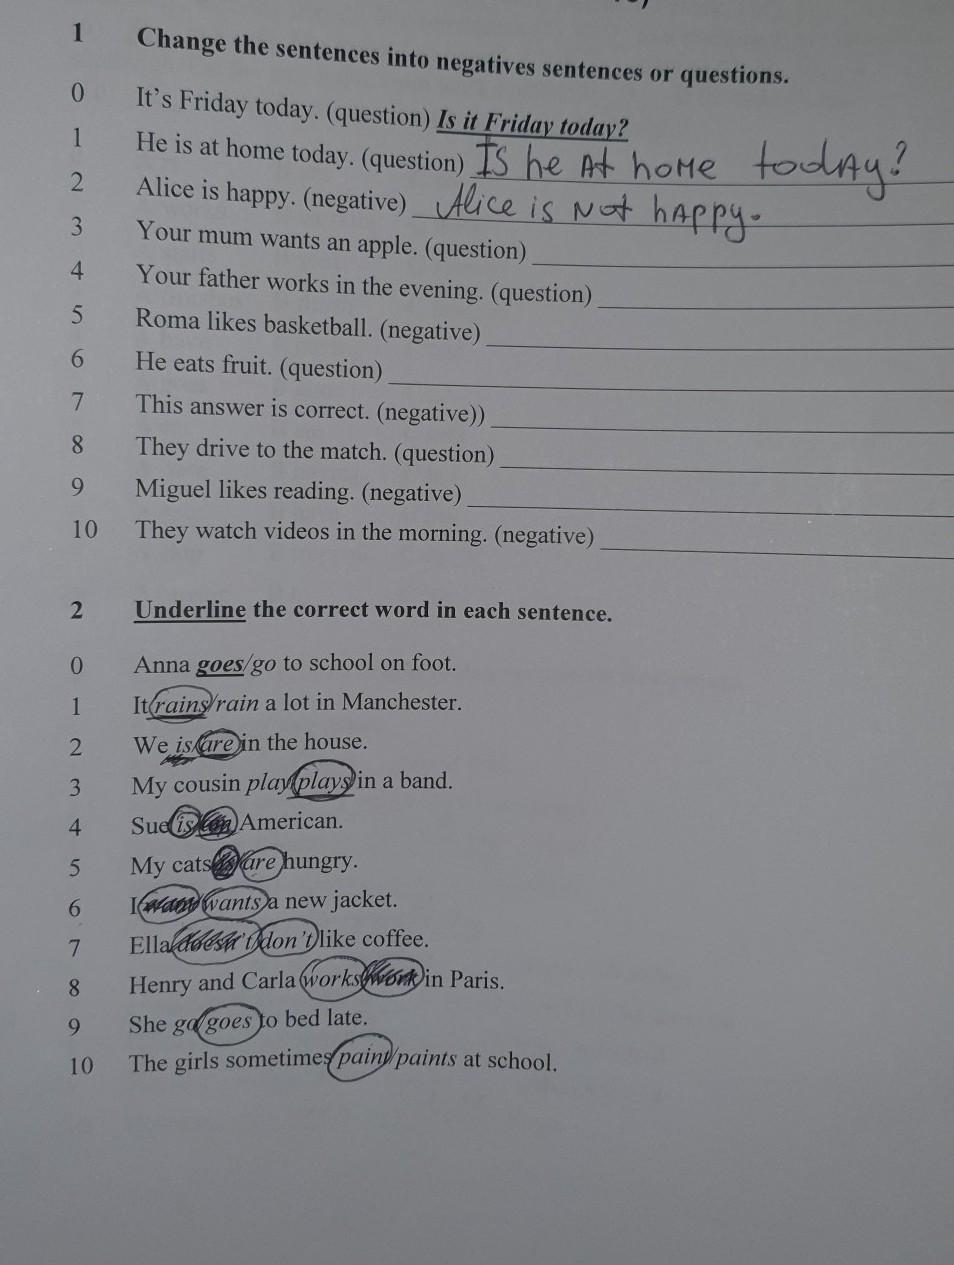 1 Change the sentences into negatives sentences or questions.
0 It's Friday today. (question) Is it Friday today?
1 He is at home today. (question) IS he At hoMe todAy?
2 Alice is happy. (negative) Alice is Not hAppy.
3 Your mum wants an apple. (question)
4 Your father works in the evening. (question)
5 Roma likes basketball. (negative)
6 He eats fruit. (question)
7 This answer is correct. (negative))
8 They drive to the match. (question)
9 Miguel likes reading. (negative)
10 They watch videos in the morning. (negative)
2 Underline the correct word in each sentence.
0 Anna goes/go to school on foot.
1 It rains/rain a lot in Manchester.
2 We is/are in the house.
3 My cousin play/plays in a band.
4 Sue is American.
5 My cats are hungry.
6 I want/wants a new jacket.
7 Ella doesn't/don't like coffee.
8 Henry and Carla works/work in Paris.
9 She go/goes to bed late.
10 The girls sometimes paint/paints at school.